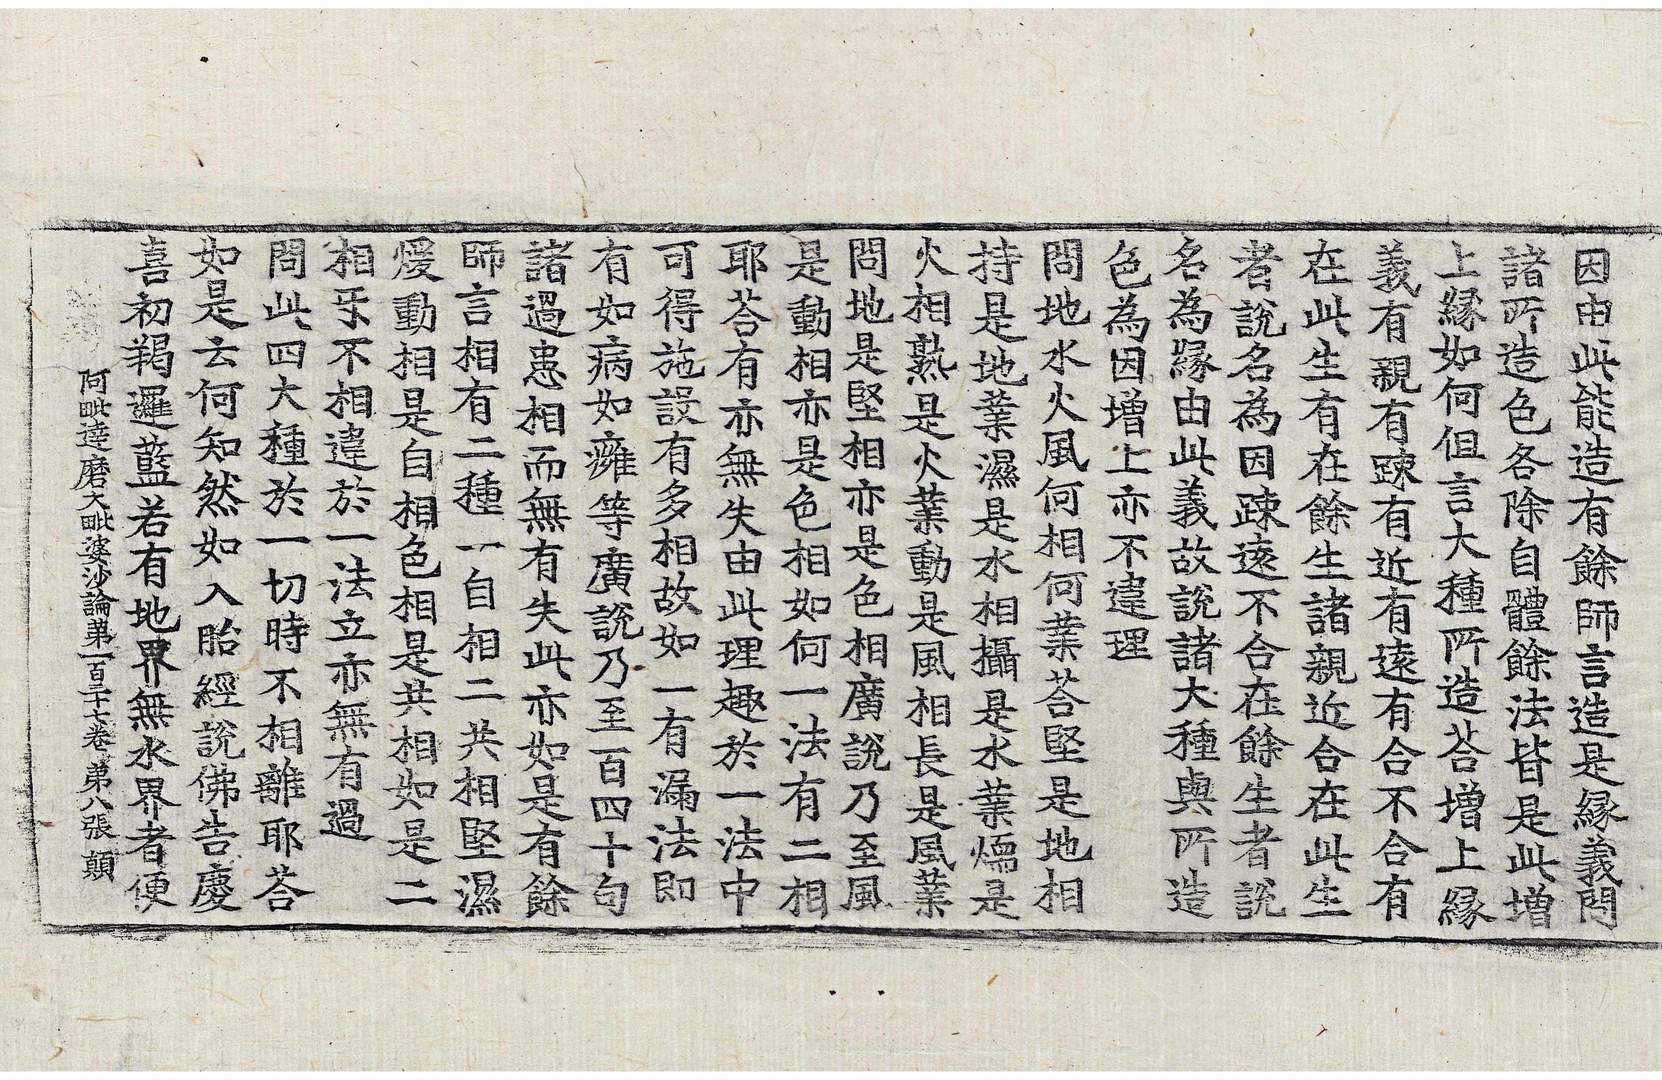 因由此能造有餘師言造是縁義問
諸所造色各除自體餘法皆是此増
上縁如何但言大種所造荅增上縁
義有親有踈有近有遠有合不合有
在此生有在餘生諸親近合在此生
者說名為因踈遠不合在餘生者說
名為縁由此義故說諸大種與所造
色為因增上亦不違理
問地水火風何相何業荅堅是地相
持是地業濕是水相攝是水業煗是
火相熟是火業動是風相長是風業
問地是堅相亦是色相廣說乃至風
是動相亦是色相如何一法有二相
耶荅有亦無失由此理趣於一法中
可得施設有多相故如一有漏法即
有如病如癰等廣說乃至百四十句
諸過患相而無有失此亦如是有餘
師言相有二種一自相二共相堅濕
煖動相是自相色相是共相如是二
相㸦不相違於一法立亦無有過
問此四大種於一切時不相離耶荅
如是云何知然如入胎經說佛告慶
喜初羯邏藍若有地界無水界者便
阿毗達磨大毗婆沙論第一百二十七卷 第八張 顛